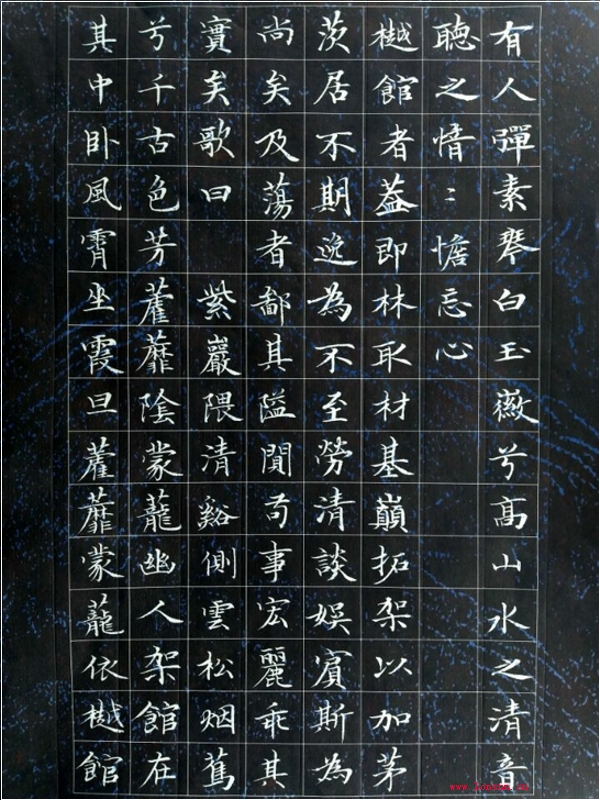 有人彈素琴白玉徽兮高山水之清音
聽之愔〻憺忘心
樾館者葢即林取材基巔拓架以加茅
茨居不期逸為不至勞清談娛賓斯為
尚矣及蕩者鄙其隘閴苟事宏麗乖其
實矣歌曰 紫巖隈清谿側雲松烟蔦
兮千古色芳藿蘼陰蒙蘢幽人架館在
其中卧風霄坐霞旦藿蘼蒙蘢依樾館